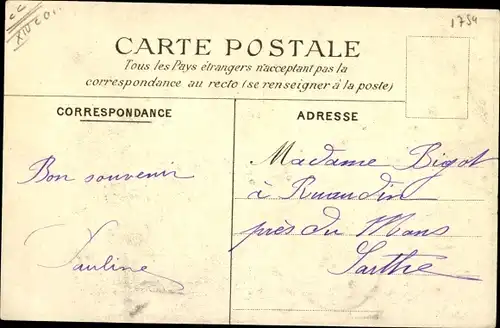 1754
CARTE POSTALE
Tous les Pays étrangers n'acceptant pas la
correspondance au recto (se renseigner à la poste)
CORRESPONDANCE
ADRESSE
Bon souvenir
Pauline
Madame Bigot
à Ruaudin
près du Mans
Sarthe